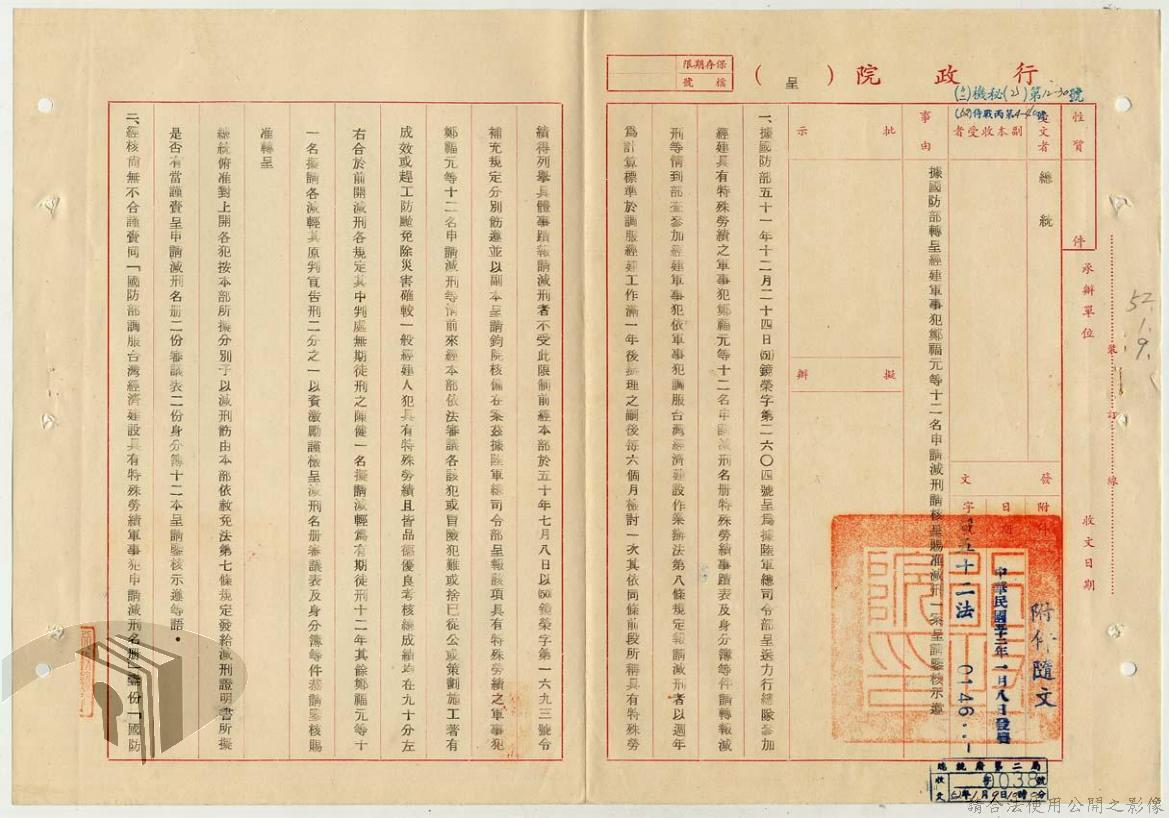 行政院（呈）
保存期限
檔號
(52)機秘(2)第12-30號
性質
件
受文者
總統
副本收受者
事由
據國防部轉呈經建軍事犯鄭福元等十二名申請減刑請核呈賜准減刑一案呈請鑒核示遵
批示
擬辦
發文
附件
附件隨文
日期
中華民國五十二年一月八日發出
字號
台五十二法
0146
承辦單位
收文日期
裝訂線
52.1.9.
總統府第二局
收文
字0038號
52年1月9日10時0分
一、據國防部五十一年十二月二十四日(51)鏡榮字第二六〇四號呈爲據陸軍總司令部呈送力行總隊參加
經建具有特殊勞績之軍事犯鄭福元等十二名申請減刑名册特殊勞績事蹟表及身分簿等件請轉報減
刑等情到部查參加經建軍事犯依軍事犯調服台灣經濟建設作業辦法第八條規定報請減刑者以週年
爲計算標準於調服經建工作滿一年後辦理之嗣後每六個月檢討一次其依同條前段所稱具有特殊勞
績得列舉具體事蹟報請減刑者不受此限制前經本部於五十年七月八日以(50)鏡榮字第一六九三號令
補充規定分別飭遵並以副本呈請鈞院核備在案茲據陸軍總司令部呈報該項具有特殊勞績之軍事犯
鄭福元等十二名申請減刑等情前來經本部依法審議各該犯或冒險犯難或捨己從公或策劃施工著有
成效或趕工防颱免除災害確較一般經建人犯具有特殊勞績且皆品德優良考核總成績均在九十分左
右合於前開減刑各規定其中判處無期徒刑之陳健一名擬請減輕爲有期徒刑十二年其餘鄭福元等十
一名擬請各減輕其原判宣告刑二分之一以資激勵謹檢呈減刑名册審議表及身分簿等件恭請鑒核賜
准轉呈
總統俯准對上開各犯按本部所擬分別予以減刑飭由本部依赦免法第七條規定發給減刑證明書所擬
是否有當謹賫呈申請減刑名册二份審議表二份身分簿十二本呈請鑒核示遵等語。
二、經核尚無不合謹賫同「國防部調服台灣經濟建設具有特殊勞績軍事犯申請減刑名册」壹份「國防
請合法使用公開之影像